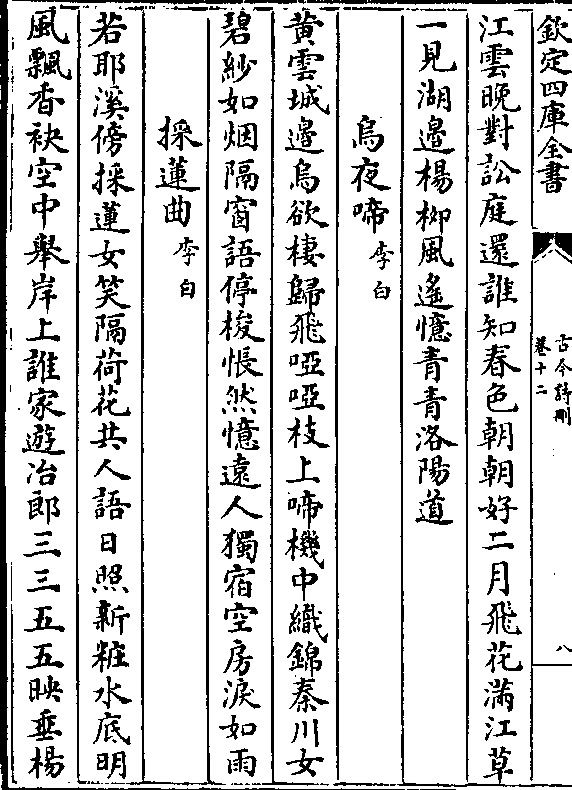 欽定四庫全書
古今詩刪
卷十二
八
江雲晚對訟庭還誰知春色朝朝好二月飛花滿江草
一見湖邊楊柳風遙憶青青洛陽道
烏夜啼 李白
黃雲城邊烏欲棲歸飛啞啞枝上啼機中織錦秦川女
碧紗如烟隔窗語停梭悵然憶遠人獨宿空房淚如雨
採蓮曲 李白
若耶溪傍採蓮女笑隔荷花共人語日照新粧水底明
風飄香袂空中舉岸上誰家遊冶郎三三五五映垂楊